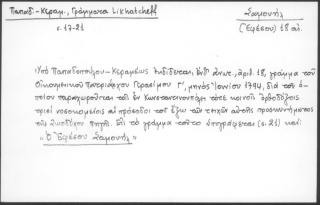 Παπαδ.-Κεραμ., Γράμματα Likhatcheff
Σαμουήλ
σ. 17-21
(Ἐφέσου) 18 αἰ.
Ὑπὸ Παπαδοπούλου-Κεραμέως ἐκδίδεται, ἔνθ' ἀνωτ., ἀριθ. 18, γράμμα τοῦ
Οἰκουμενικοῦ Πατριάρχου Γερασίμου Γ', μηνὸς Ἰουνίου 1794, διὰ τοῦ ὁ-
ποίου παραχωροῦνται τοῖς ἐν Κωνσταντινουπόλει τότε κοινοῖς ὀρθοδόξοις
τρισὶ νοσοκομείοις αἱ πρόσοδοι τοῦ ἔξω τῶν τειχῶν αὐτῆς προσκυνήματος
τῆς Ζωοδόχου πηγῆς. Ἐπὶ τὸ γράμμα τοῦτο ὑπογράφεται (σ. 21) καί:
"Ὁ Ἐφέσου Σαμουήλ"